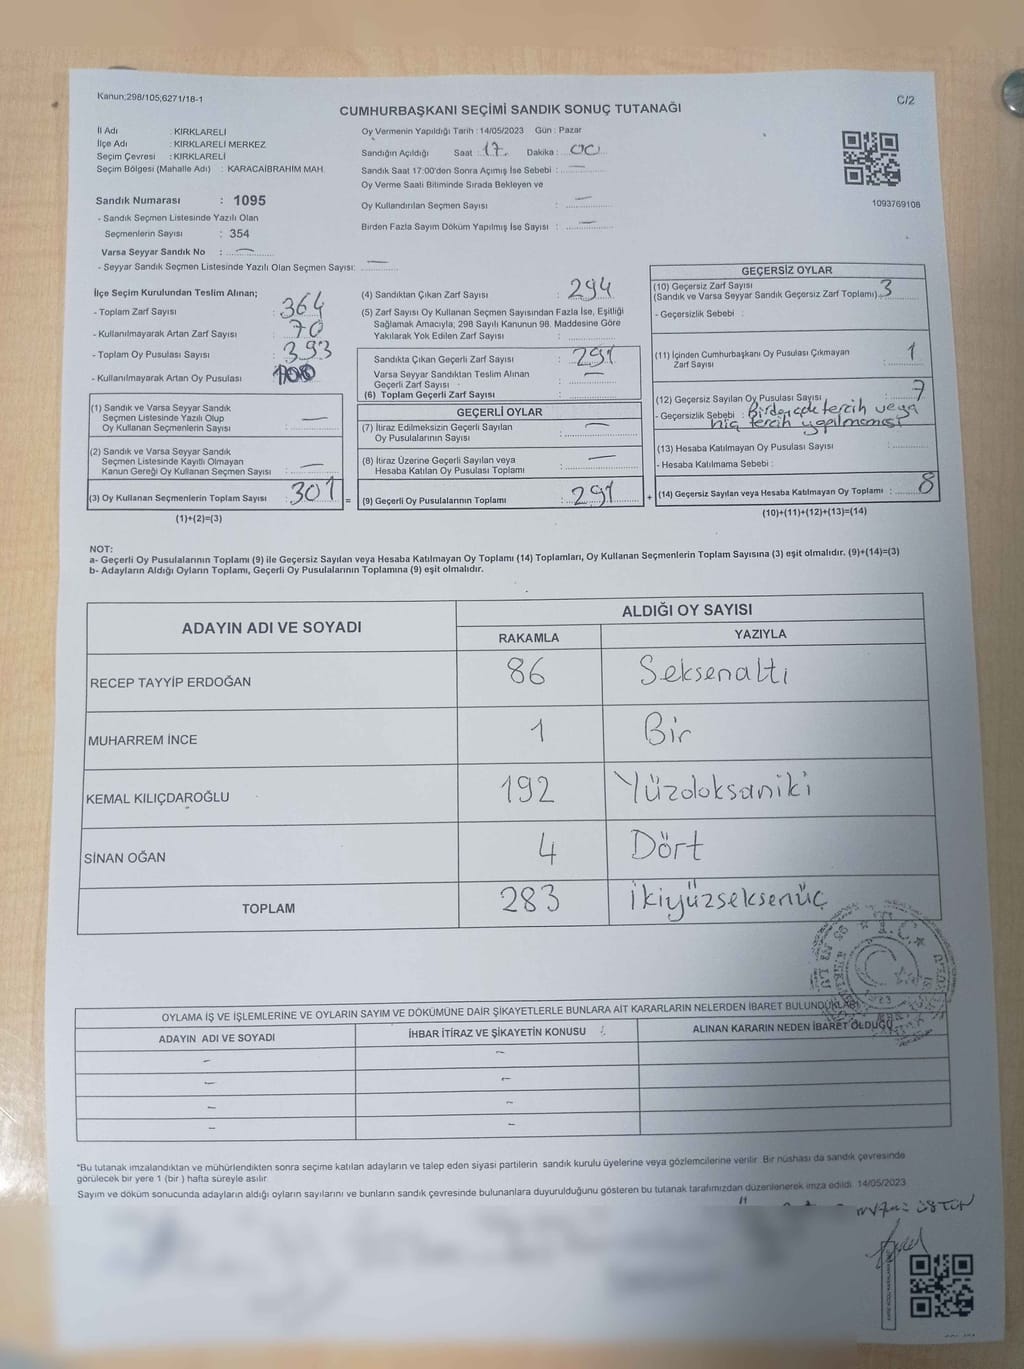 Kanun;298/105;6271/18-1
C/2
CUMHURBAŞKANI SEÇİMİ SANDIK SONUÇ TUTANAĞI
İl Adı : KIRKLARELİ
İlçe Adı : KIRKLARELİ MERKEZ
Seçim Çevresi : KIRKLARELİ
Seçim Bölgesi (Mahalle Adı) : KARACAİBRAHİM MAH.
Oy Vermenin Yapıldığı Tarih : 14/05/2023 Gün : Pazar
Sandığın Açıldığı Saat : 17 Dakika : 00
Sandık Saat 17:00'den Sonra Açımış İse Sebebi : —
Oy Verme Saati Bitiminde Sırada Bekleyen ve
Oy Kullandırılan Seçmen Sayısı : —
Birden Fazla Sayım Döküm Yapılmış İse Sayısı : —
1093769108
Sandık Numarası : 1095
- Sandık Seçmen Listesinde Yazılı Olan
Seçmenlerin Sayısı : 354
Varsa Seyyar Sandık No : —
- Seyyar Sandık Seçmen Listesinde Yazılı Olan Seçmen Sayısı: —
İlçe Seçim Kurulundan Teslim Alınan;
- Toplam Zarf Sayısı : 364
- Kullanılmayarak Artan Zarf Sayısı : 70
- Toplam Oy Pusulası Sayısı : 393
- Kullanılmayarak Artan Oy Pusulası
(1) Sandık ve Varsa Seyyar Sandık
Seçmen Listesinde Yazılı Olup
Oy Kullanan Seçmenlerin Sayısı : —
(2) Sandık ve Varsa Seyyar Sandık
Seçmen Listesinde Kayıtlı Olmayan
Kanun Gereği Oy Kullanan Seçmen Sayısı : —
(3) Oy Kullanan Seçmenlerin Toplam Sayısı : 301
(1)+(2)=(3)
(4) Sandıktan Çıkan Zarf Sayısı : 294
(5) Zarf Sayısı Oy Kullanan Seçmen Sayısından Fazla İse, Eşitliği
Sağlamak Amacıyla, 298 Sayılı Kanunun 98. Maddesine Göre
Yakılarak Yok Edilen Zarf Sayısı :
Sandıkta Çıkan Geçerli Zarf Sayısı : 291
Varsa Seyyar Sandıktan Teslim Alınan
Geçerli Zarf Sayısı : —
(6) Toplam Geçerli Zarf Sayısı :
GEÇERLİ OYLAR
(7) İtiraz Edilmeksizin Geçerli Sayılan
Oy Pusulalarının Sayısı : —
(8) İtiraz Üzerine Geçerli Sayılan veya
Hesaba Katılan Oy Pusulası Toplamı : —
= (9) Geçerli Oy Pusulalarının Toplamı : 291
GEÇERSİZ OYLAR
(10) Geçersiz Zarf Sayısı
(Sandık ve Varsa Seyyar Sandık Geçersiz Zarf Toplamı) : 3
- Geçersizlik Sebebi :
(11) İçinden Cumhurbaşkanı Oy Pusulası Çıkmayan
Zarf Sayısı : 1
(12) Geçersiz Sayılan Oy Pusulası Sayısı : 7
- Geçersizlik Sebebi : Birden çok tercih veya
hiç tercih yapılmaması
(13) Hesaba Katılmayan Oy Pusulası Sayısı :
- Hesaba Katılmama Sebebi :
+ (14) Geçersiz Sayılan veya Hesaba Katılmayan Oy Toplamı : 8
(10)+(11)+(12)+(13)=(14)
NOT:
a- Geçerli Oy Pusulalarının Toplamı (9) ile Geçersiz Sayılan veya Hesaba Katılmayan Oy Toplamı (14) Toplamları, Oy Kullanan Seçmenlerin Toplam Sayısına (3) eşit olmalıdır. (9)+(14)=(3)
b- Adayların Aldığı Oyların Toplamı, Geçerli Oy Pusulalarının Toplamına (9) eşit olmalıdır.
ADAYIN ADI VE SOYADI
ALDIĞI OY SAYISI
RAKAMLA YAZIYLA
RECEP TAYYİP ERDOĞAN 86 Seksenaltı
MUHARREM İNCE 1 Bir
KEMAL KILIÇDAROĞLU 192 Yüzdoksaniki
SİNAN OĞAN 4 Dört
TOPLAM 283 İkiyüzseksenüç
T.C.
OYLAMA İŞ VE İŞLEMLERİNE VE OYLARIN SAYIM VE DÖKÜMÜNE DAİR ŞİKAYETLERLE BUNLARA AİT KARARLARIN NELERDEN İBARET BULUNDUKLARI
ADAYIN ADI VE SOYADI İHBAR İTİRAZ VE ŞİKAYETİN KONUSU ALINAN KARARIN NEDEN İBARET OLDUĞU
— —
— —
— —
— —
*Bu tutanak imzalandıktan ve mühürlendikten sonra seçime katılan adayların ve talep eden siyasi partilerin sandık kurulu üyelerine veya gözlemcilerine verilir. Bir nüshası da sandık çevresinde
görülecek bir yere 1 (bir ) hafta süreyle asılır.
Sayım ve döküm sonucunda adayların aldığı oyların sayılarını ve bunların sandık çevresinde bulunanlara duyurulduğunu gösteren bu tutanak tarafımızdan düzenlenerek imza edildi. 14/05/2023